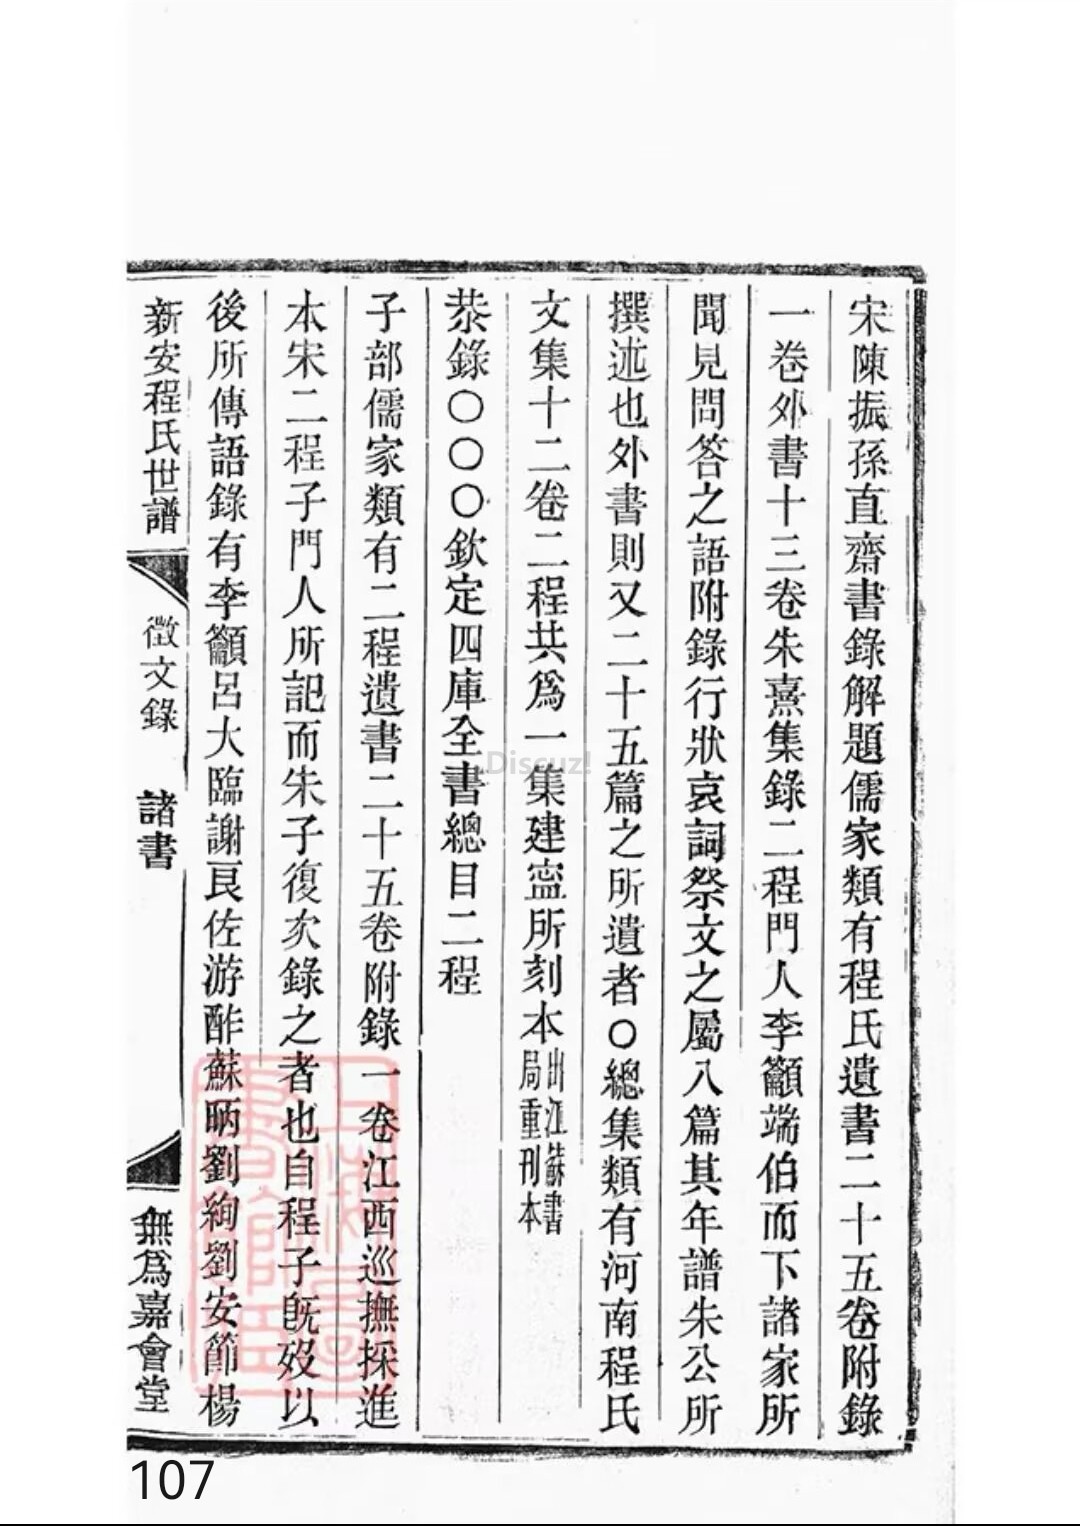 宋陳振孫直齋書錄解題儒家類有程氏遺書二十五卷附錄
一卷外書十三卷朱熹集錄二程門人李籲端伯而下諸家所
聞見問答之語附錄行狀哀詞祭文之屬八篇其年譜朱公所
撰述也外書則又二十五篇之所遺者〇總集類有河南程氏
文集十二卷二程共爲一集建寍所刻本出江蘇書局重刊本
恭錄〇〇〇欽定四庫全書總目二程
子部儒家類有二程遺書二十五卷附錄一卷江西巡撫採進
本宋二程子門人所記而朱子復次錄之者也自程子旣歿以
後所傳語錄有李籲呂大臨謝良佐游酢蘇昞劉絢劉安節楊
新安程氏世譜
徵文錄
諸書
無爲嘉會堂
Discuz!
107